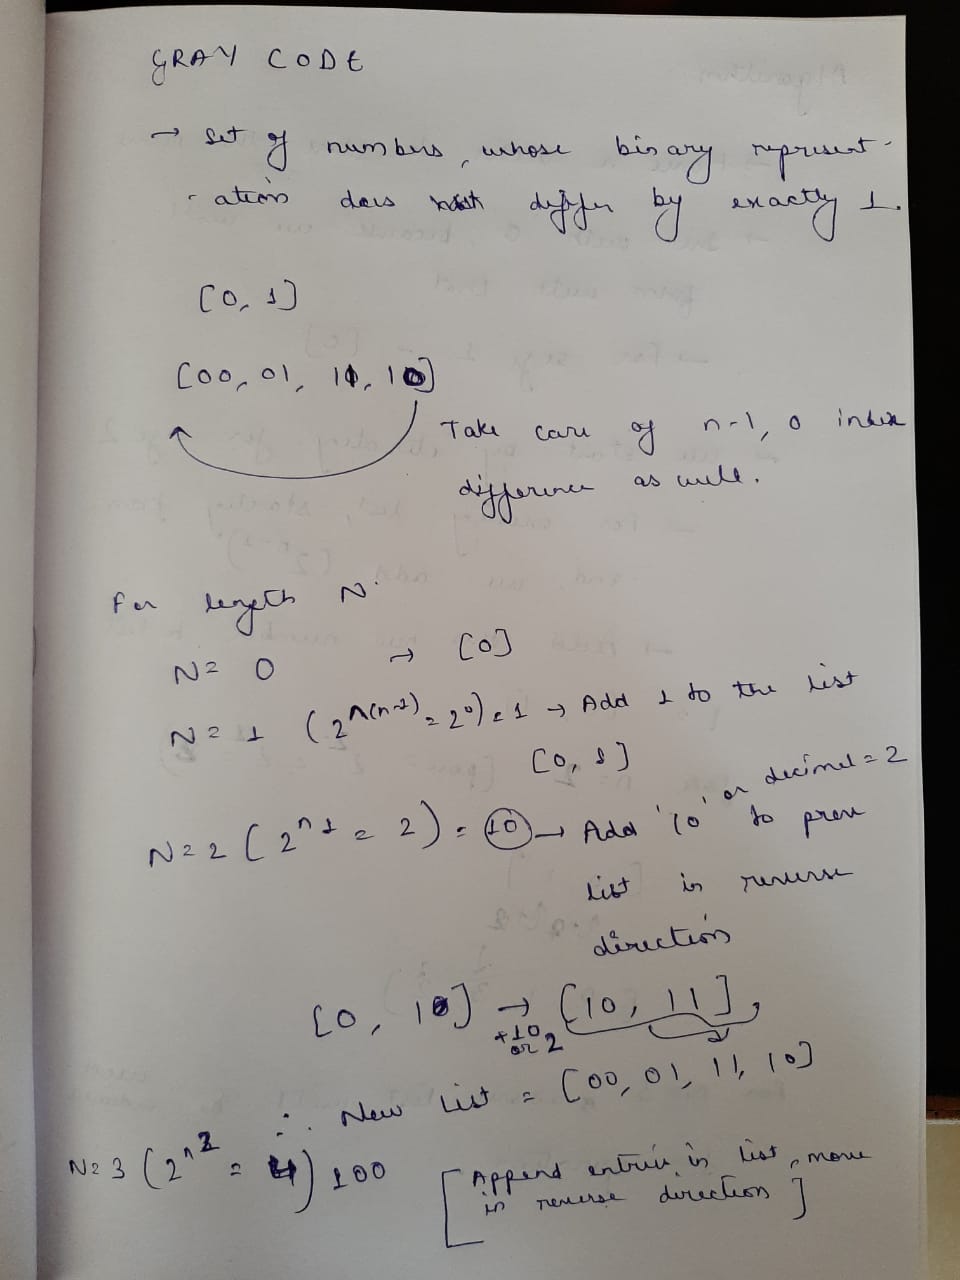 GRAY CODE
→ set of numbers, whose binary represent-
-ation does differ by exactly 1.
[0, 1]
[00, 01, 11, 10]
Take care of n-1, 0 index
difference as well.
For length N.
N = 0 → [0]
N = 1 (2^(n-1) = 2^0) = 1 → Add 1 to the list
[0, 1]
N = 2 (2^1 = 2) = 10 → Add '10' or decimal = 2 to prev
list in reverse
direction
[0, 1] → [10, 11],
+10
or 2
∴ New List = [00, 01, 11, 10]
N = 3 (2^2 = 4) 100
[Append entries in list, move
in reverse direction]